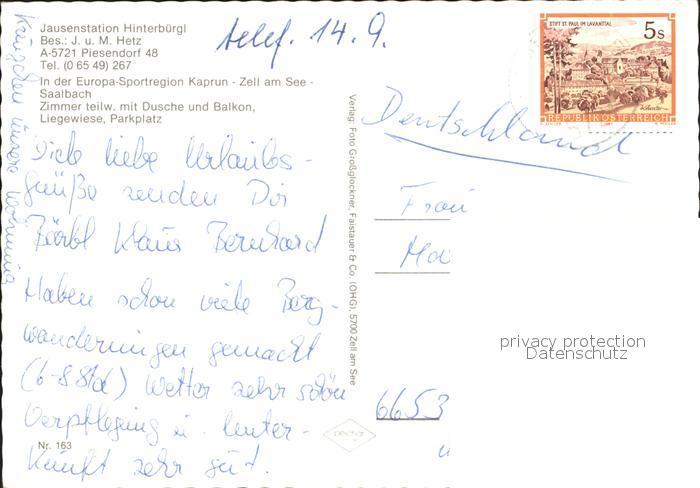 Jausenstation Hinterbürgl
Bes.: J. u. M. Hetz
A-5721 Piesendorf 48
Tel. (0 65 49) 267
In der Europa-Sportregion Kaprun - Zell am See -
Saalbach
Zimmer teilw. mit Dusche und Balkon,
Liegewiese, Parkplatz
telef. 14. 9.
STIFT ST. PAUL IM LAVANTTAL
5 S
REPUBLIK ÖSTERREICH
Deutschland
unsere Wohnung
Viele liebe Urlaubs-
grüße senden Dir
Bärbl Klaus Bernhard
Haben schon viele Berg-
wanderungen gemacht
(6-8 Std) Wetter sehr schön
Verpflegung u. Unter-
kunft sehr gut.
Nr. 163
Verlag: Foto Großglockner, Falstauer & Co. (OHG), 5700 Zell am See
Frau
6653
privacy protection
Datenschutz